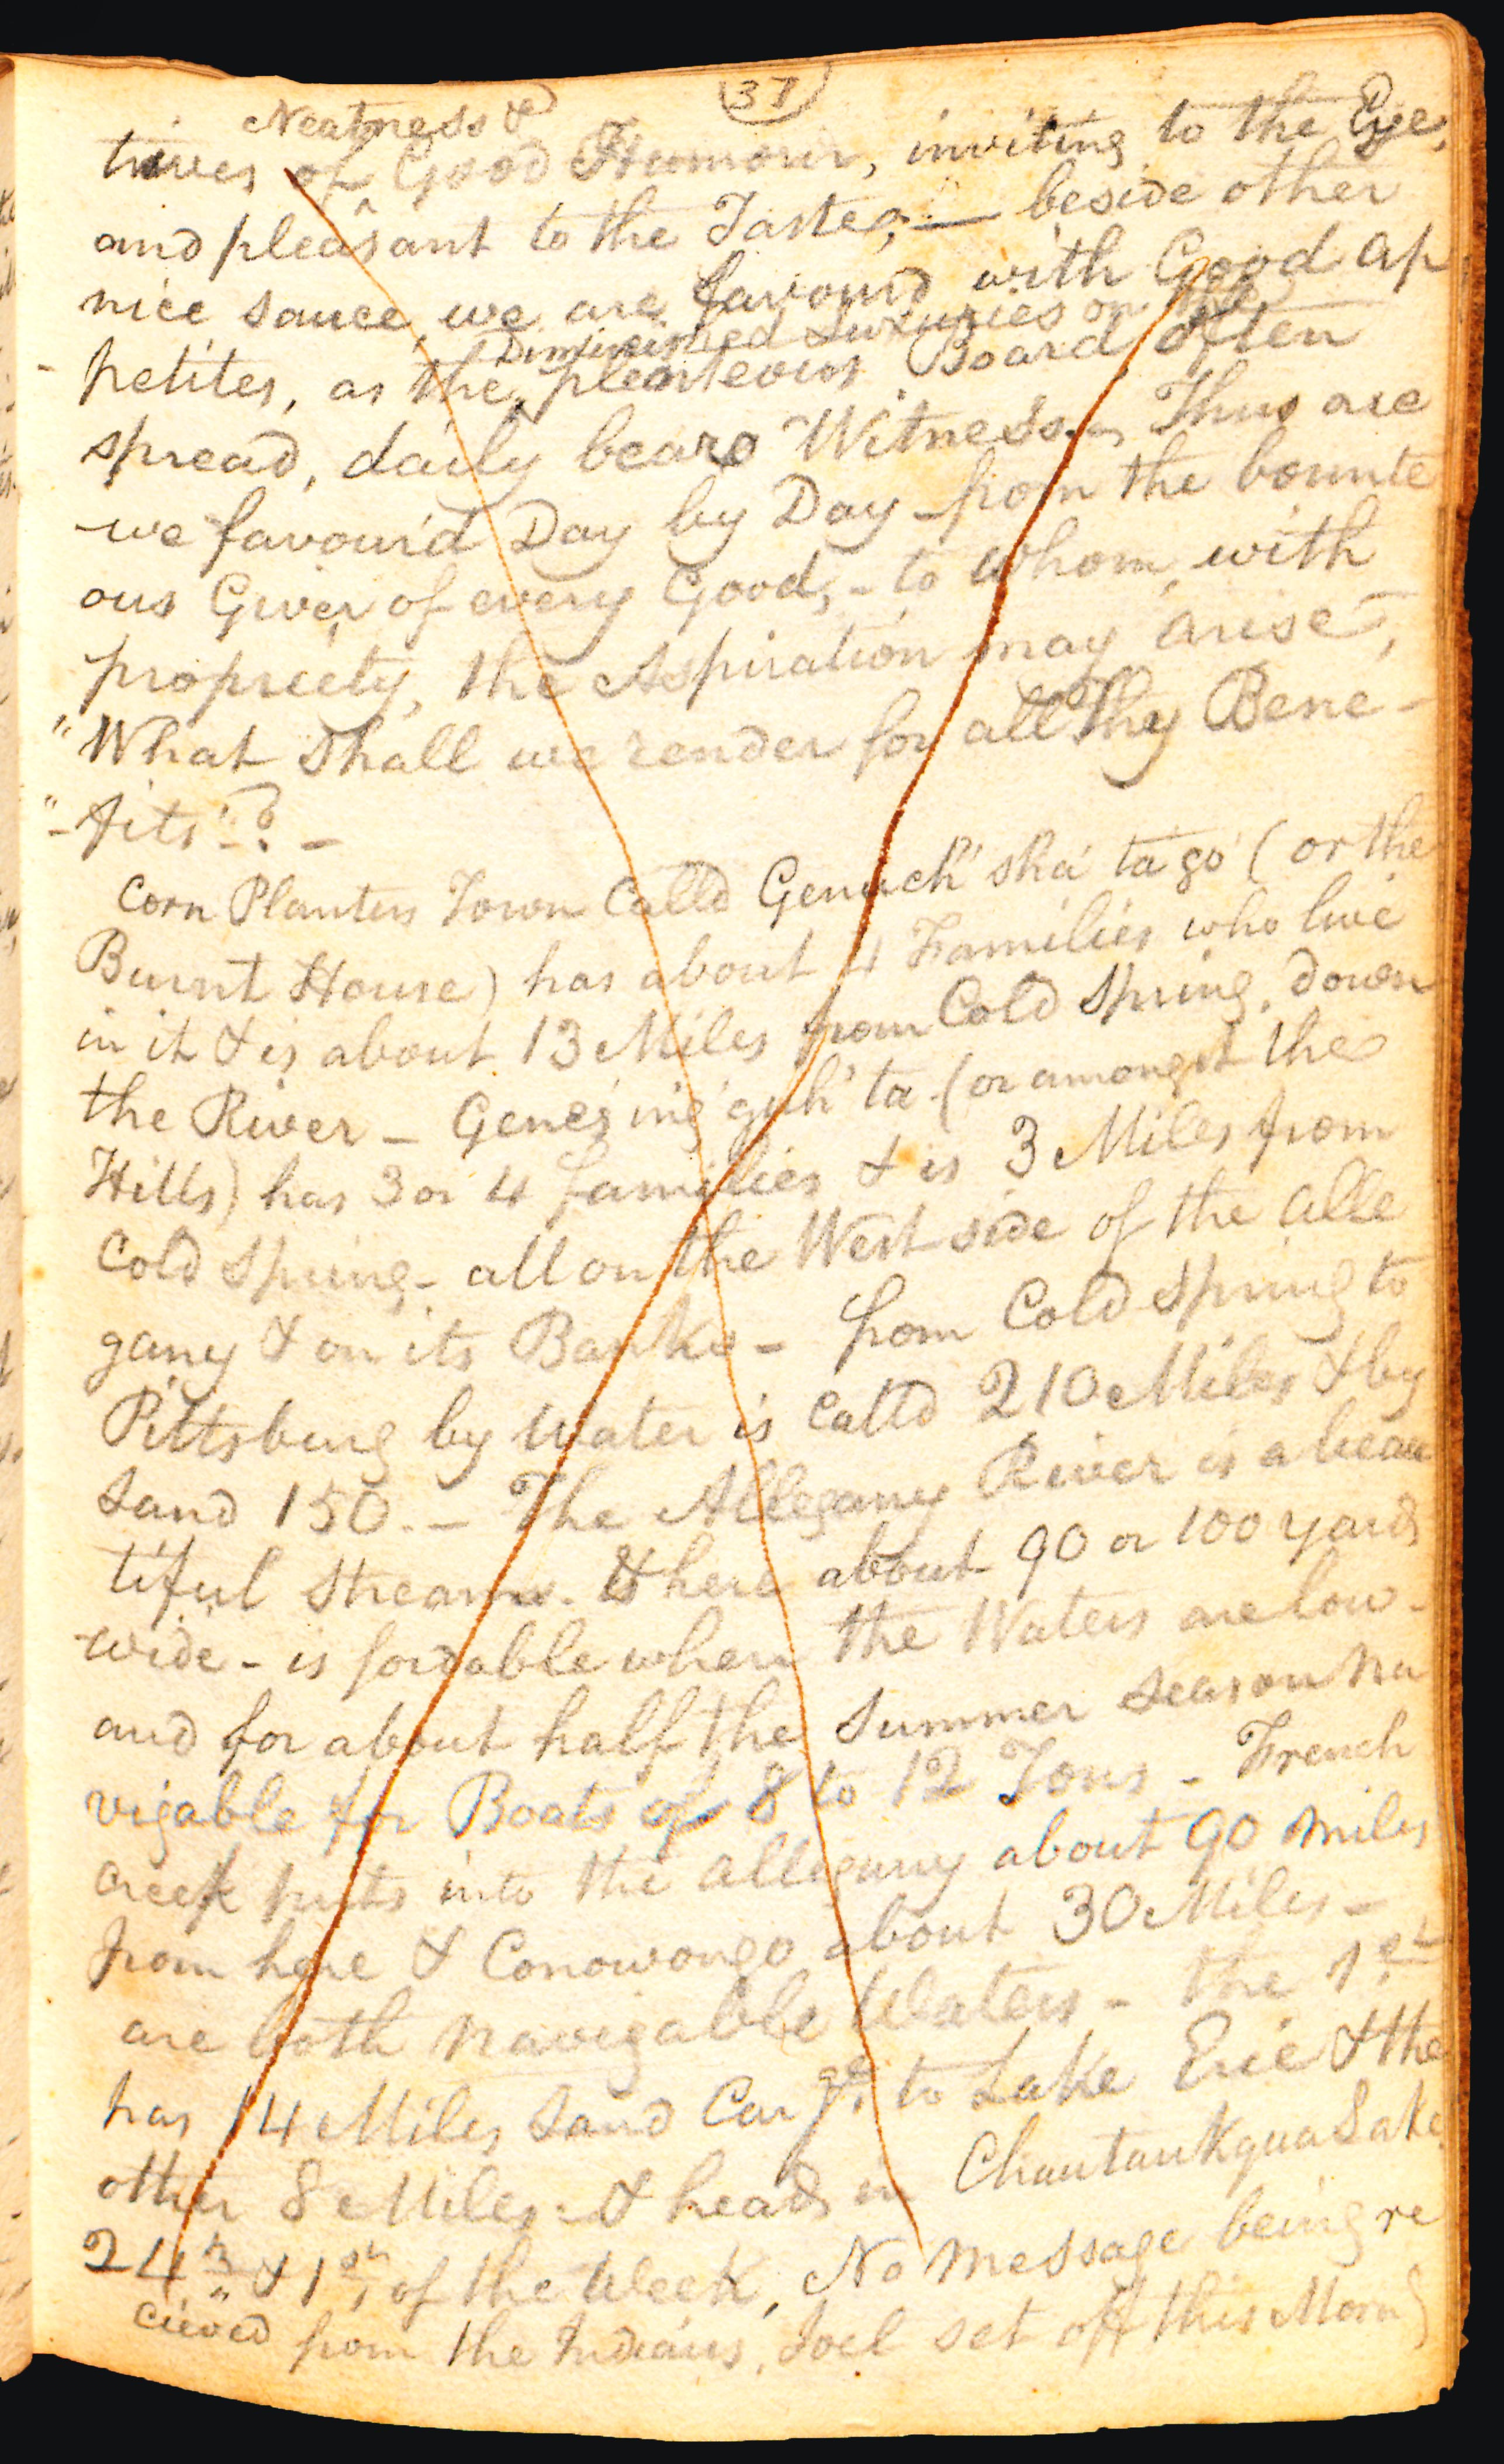 37
Neatness &
tives of Good Humour, inviting to the Eye,
and pleasant to the Taste; — beside other
nice sauce, we are favour'd with Good Ap
Diminished Luxuries on the
petites, as the plenteous Board often
spread, daily bears Witness. Thus are
we favour'd Day by Day from the bounte
ous Giver of every Good, - to whom, with
propriety, the Aspiration may arise,
"What shall we render for all Thy Bene-
"-fits"? -
Corn Planters Town Calld Genuch' sha' ta' go' (or the
Burnt House) has about 4 Families who live
in it & is about 13 Miles from Cold Spring, down
the River - (or amongst the
Hills) has 3 or 4 families & is 3 Miles from
Cold Spring - all on the West side of the Alle
gany & on its Banks - from Cold Spring to
Pittsburg by Water is Calld 210 Miles & by
Land 150. - The Allegany River is a beau
tiful Stream. Is here about 90 or 100 yards
wide - is fordable when the Waters are low -
and for about half the Summer season na
vigable for Boats of 8 to 12 Tons - French
creek puts into the Allegany about 90 miles
from here & Conowongo about 30 Miles -
are both Navigable Waters - the 1st
has 14 Miles Land Carge. to Lake Erie & the
other 8 Miles - & heads in Chautaukqua Lake
24th & 1st of the Week, No Message being re
cieved from the Indians, Joel set off this Morng